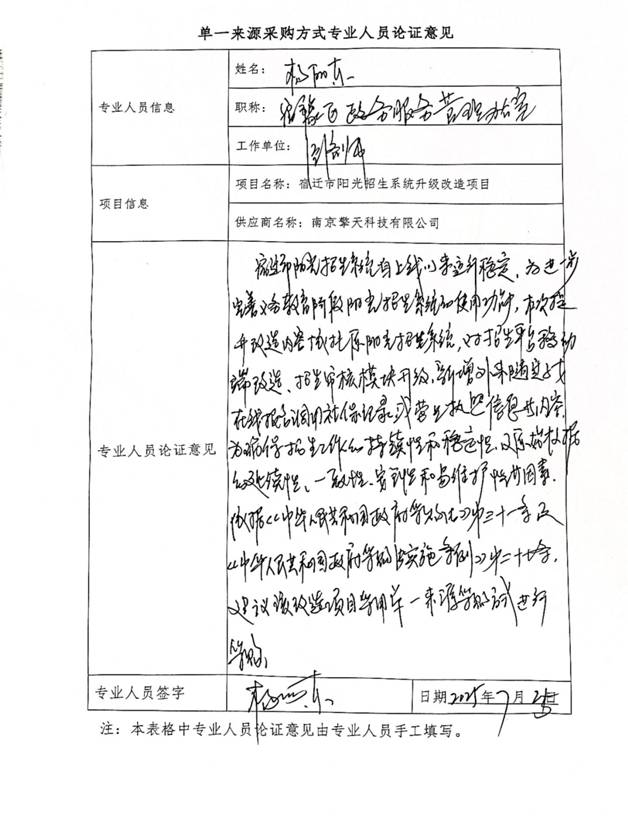 单一来源采购方式专业人员论证意见
专业人员信息
姓名：
职称：
工作单位：
项目信息
项目名称：宿迁市阳光招生系统升级改造项目
供应商名称：南京擎天科技有限公司
专业人员论证意见
宿迁市阳光招生系统自上线以来运行稳定，为进一步
完善义务教育阶段阳光招生系统的使用功能，本次提
升改造内容依托原阳光招生系统，对招生平台移动
端改造、招生审核模块升级，新增外来随迁子女
在线报名调用社保记录或营业执照信息等内容，
为确保招生工作的持续性和稳定性，及原始数据
的延续性、一致性、安全性和易维护性等因素，
依据《中华人民共和国政府采购法》第三十一条及
《中华人民共和国政府采购法实施条例》第二十七条，
建议该改造项目采用单一来源采购方式进行
采购。
专业人员签字
日期2025年7月25日
注：本表格中专业人员论证意见由专业人员手工填写。